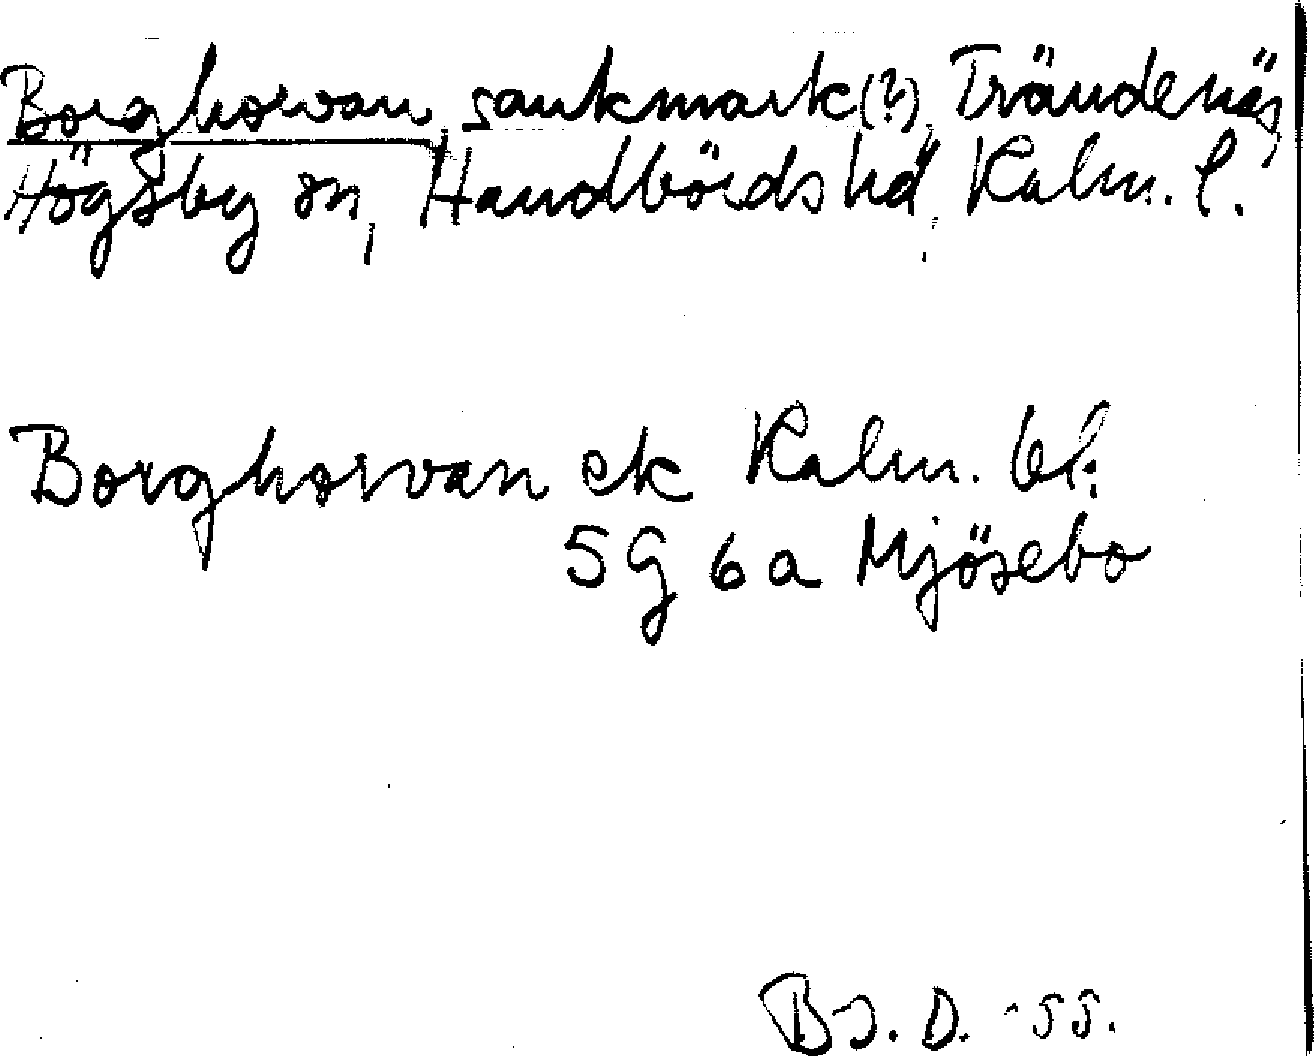 Borghorvan, sankmark(?), Trändenäs,
Högsby sn, Handbörds hd, Kalm. l.
Borghorvan ek Kalm. bl.
5G 6a Mjösebo
Bj. D. -55.